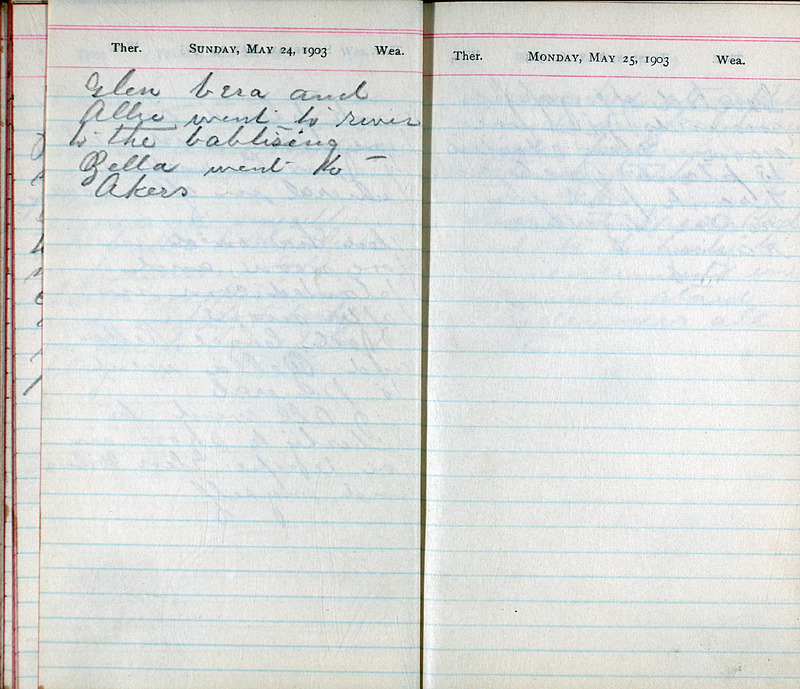 Ther. SUNDAY, MAY 24, 1903 Wea.
Glen Vera and
Allie went to river
to the babtising
Zella went to
Akers
Ther. MONDAY, MAY 25, 1903 Wea.